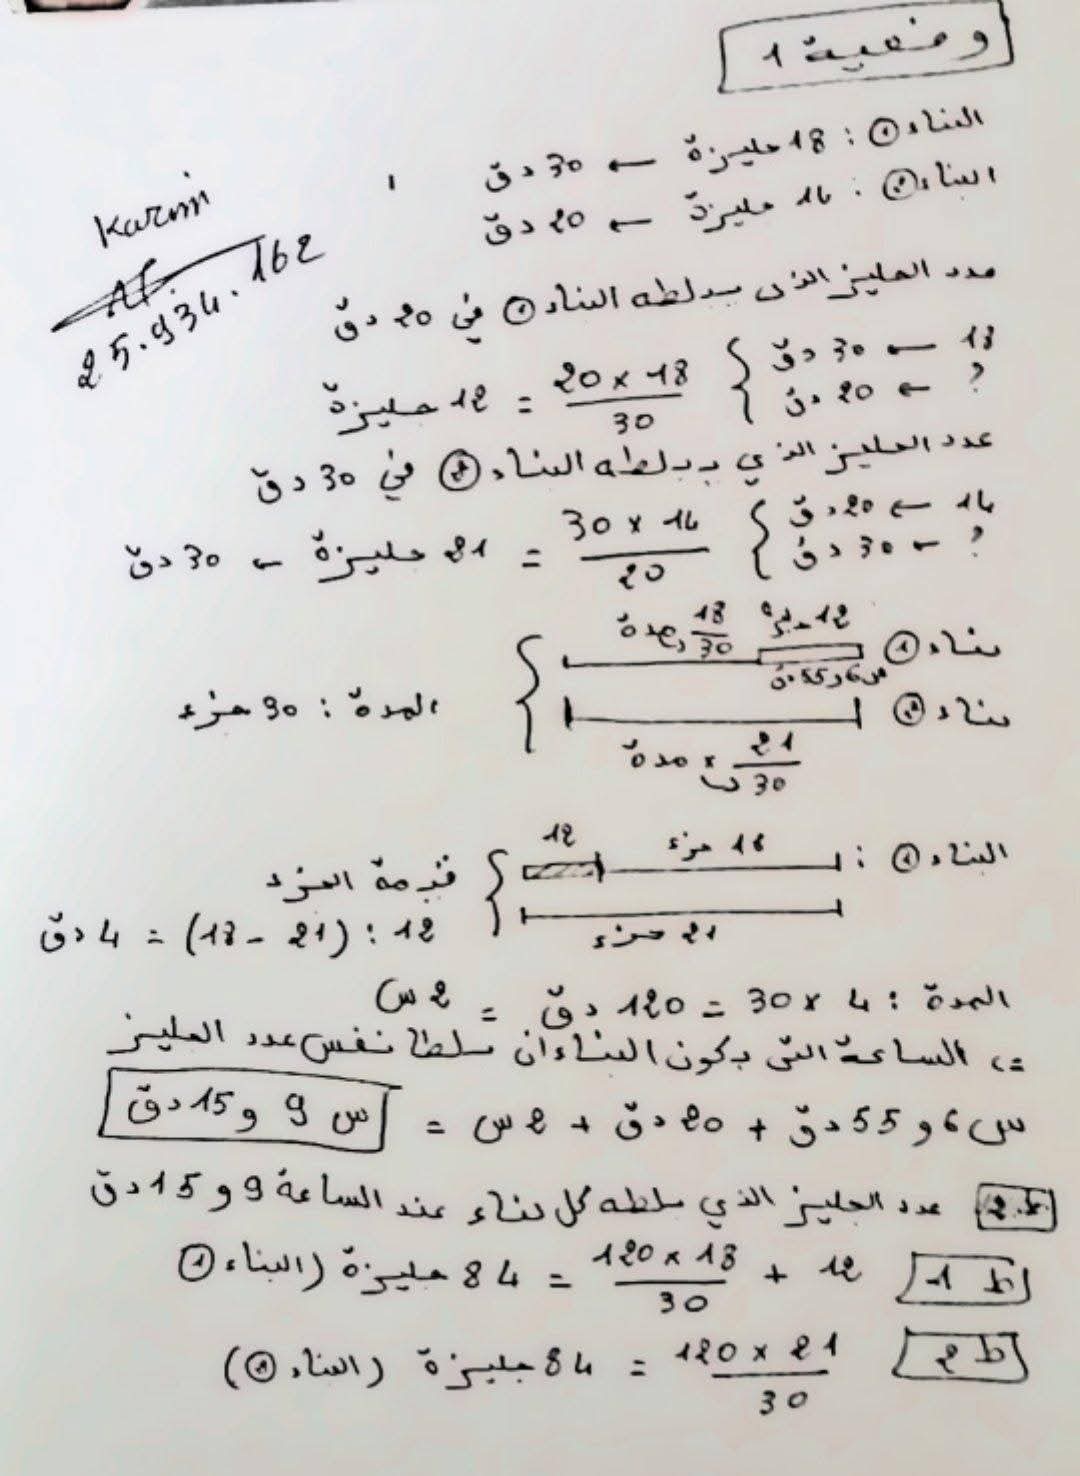 وضعية 1
البناء ① : 18 جليزة ← 30 دق
البناء ② : 14 جليزة ← 20 دق
Karim
25.934.162
عدد الجليز الذي يبلطه البناء ① في 20 دق
18 ← 30 دق
? ← 20 دق
20 × 18 / 30 = 12 جليزة
عدد الجليز الذي يبلطه البناء ② في 30 دق
14 ← 20 دق
? ← 30 دق
30 × 14 / 20 = 21 جليزة ← 30 دق
بناء ① 12 18/30 مدة
س 6 و 55 دق
بناء ②
21/30 × مدة
المدة : 30 جزء
البناء ① : 18 جزء 12
21 جزء
قيمة الجزء
12 : (21 - 18) = 4 دق
المدة : 4 × 30 = 120 دق = 2 س
=> الساعة التي يكون البناءان بلطا نفس عدد الجليز
س 6 و 55 دق + 20 دق + 2 س = س 9 و 15 دق
2. عدد الجليز الذي بلطه كل بناء عند الساعة 9 و 15 دق
ط 1 12 + 120 × 18 / 30 = 84 جليزة (البناء ①
ط 2 120 × 21 / 30 = 84 جليزة (البناء ②)